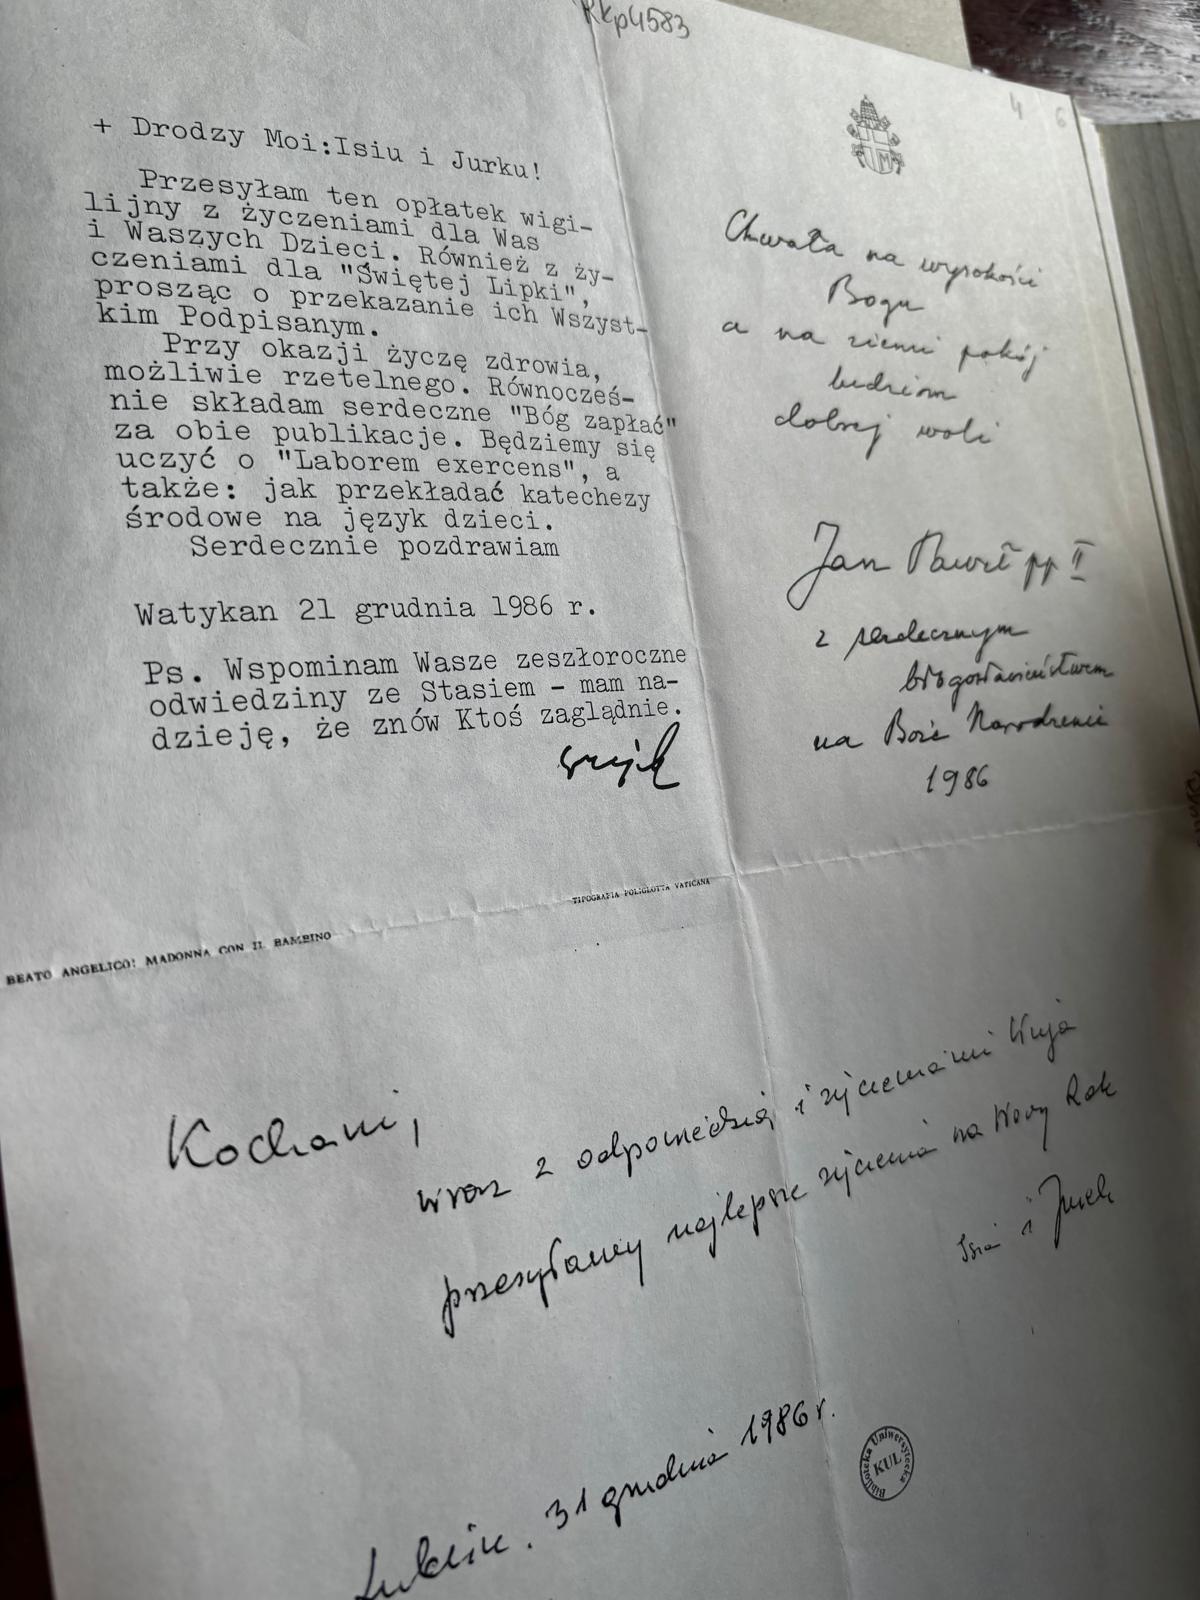 Rkp4583
4 6
+ Drodzy Moi:Isiu i Jurku!
Przesyłam ten opłatek wigi-
lijny z życzeniami dla Was
i Waszych Dzieci. Również z ży-
czeniami dla "Świętej Lipki",
prosząc o przekazanie ich Wszyst-
kim Podpisanym.
Przy okazji życzę zdrowia,
możliwie rzetelnego. Równocześ-
nie składam serdeczne "Bóg zapłać"
za obie publikacje. Będziemy się
uczyć o "Laborem exercens", a
także: jak przekładać katechezy
środowe na język dzieci.
Serdecznie pozdrawiam
Watykan 21 grudnia 1986 r.
Ps. Wspominam Wasze zeszłoroczne
odwiedziny ze Stasiem - mam na-
dzieję, że znów Ktoś zaglądnie.
Wujek
Chwała na wysokości
Bogu
a na ziemi pokój
ludziom
dobrej woli
Jan Paweł pp II
z serdecznym
błogosławieństwem
na Boże Narodzenie
1986
TIPOGRAFIA POLIGLOTTA VATICANA
BEATO ANGELICO: MADONNA CON IL BAMBINO
Kochani,
wraz z odpowiedzią i życzeniami Wuja
przesyłamy najlepsze życzenia na Nowy Rok
Isia i Jurek
Lublin. 31 grudnia 1986 r.
Biblioteka Uniwersytecka
KUL